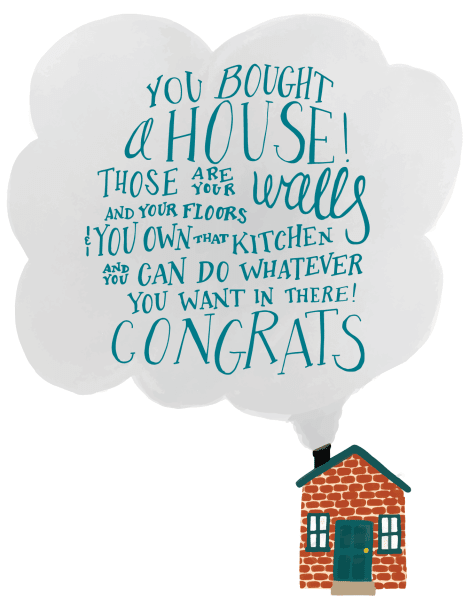 YOU BOUGHT
a HOUSE!
THOSE ARE YOUR walls
AND YOUR FLOORS
& YOU OWN THAT KITCHEN
AND YOU CAN DO WHATEVER
YOU WANT IN THERE!
CONGRATS